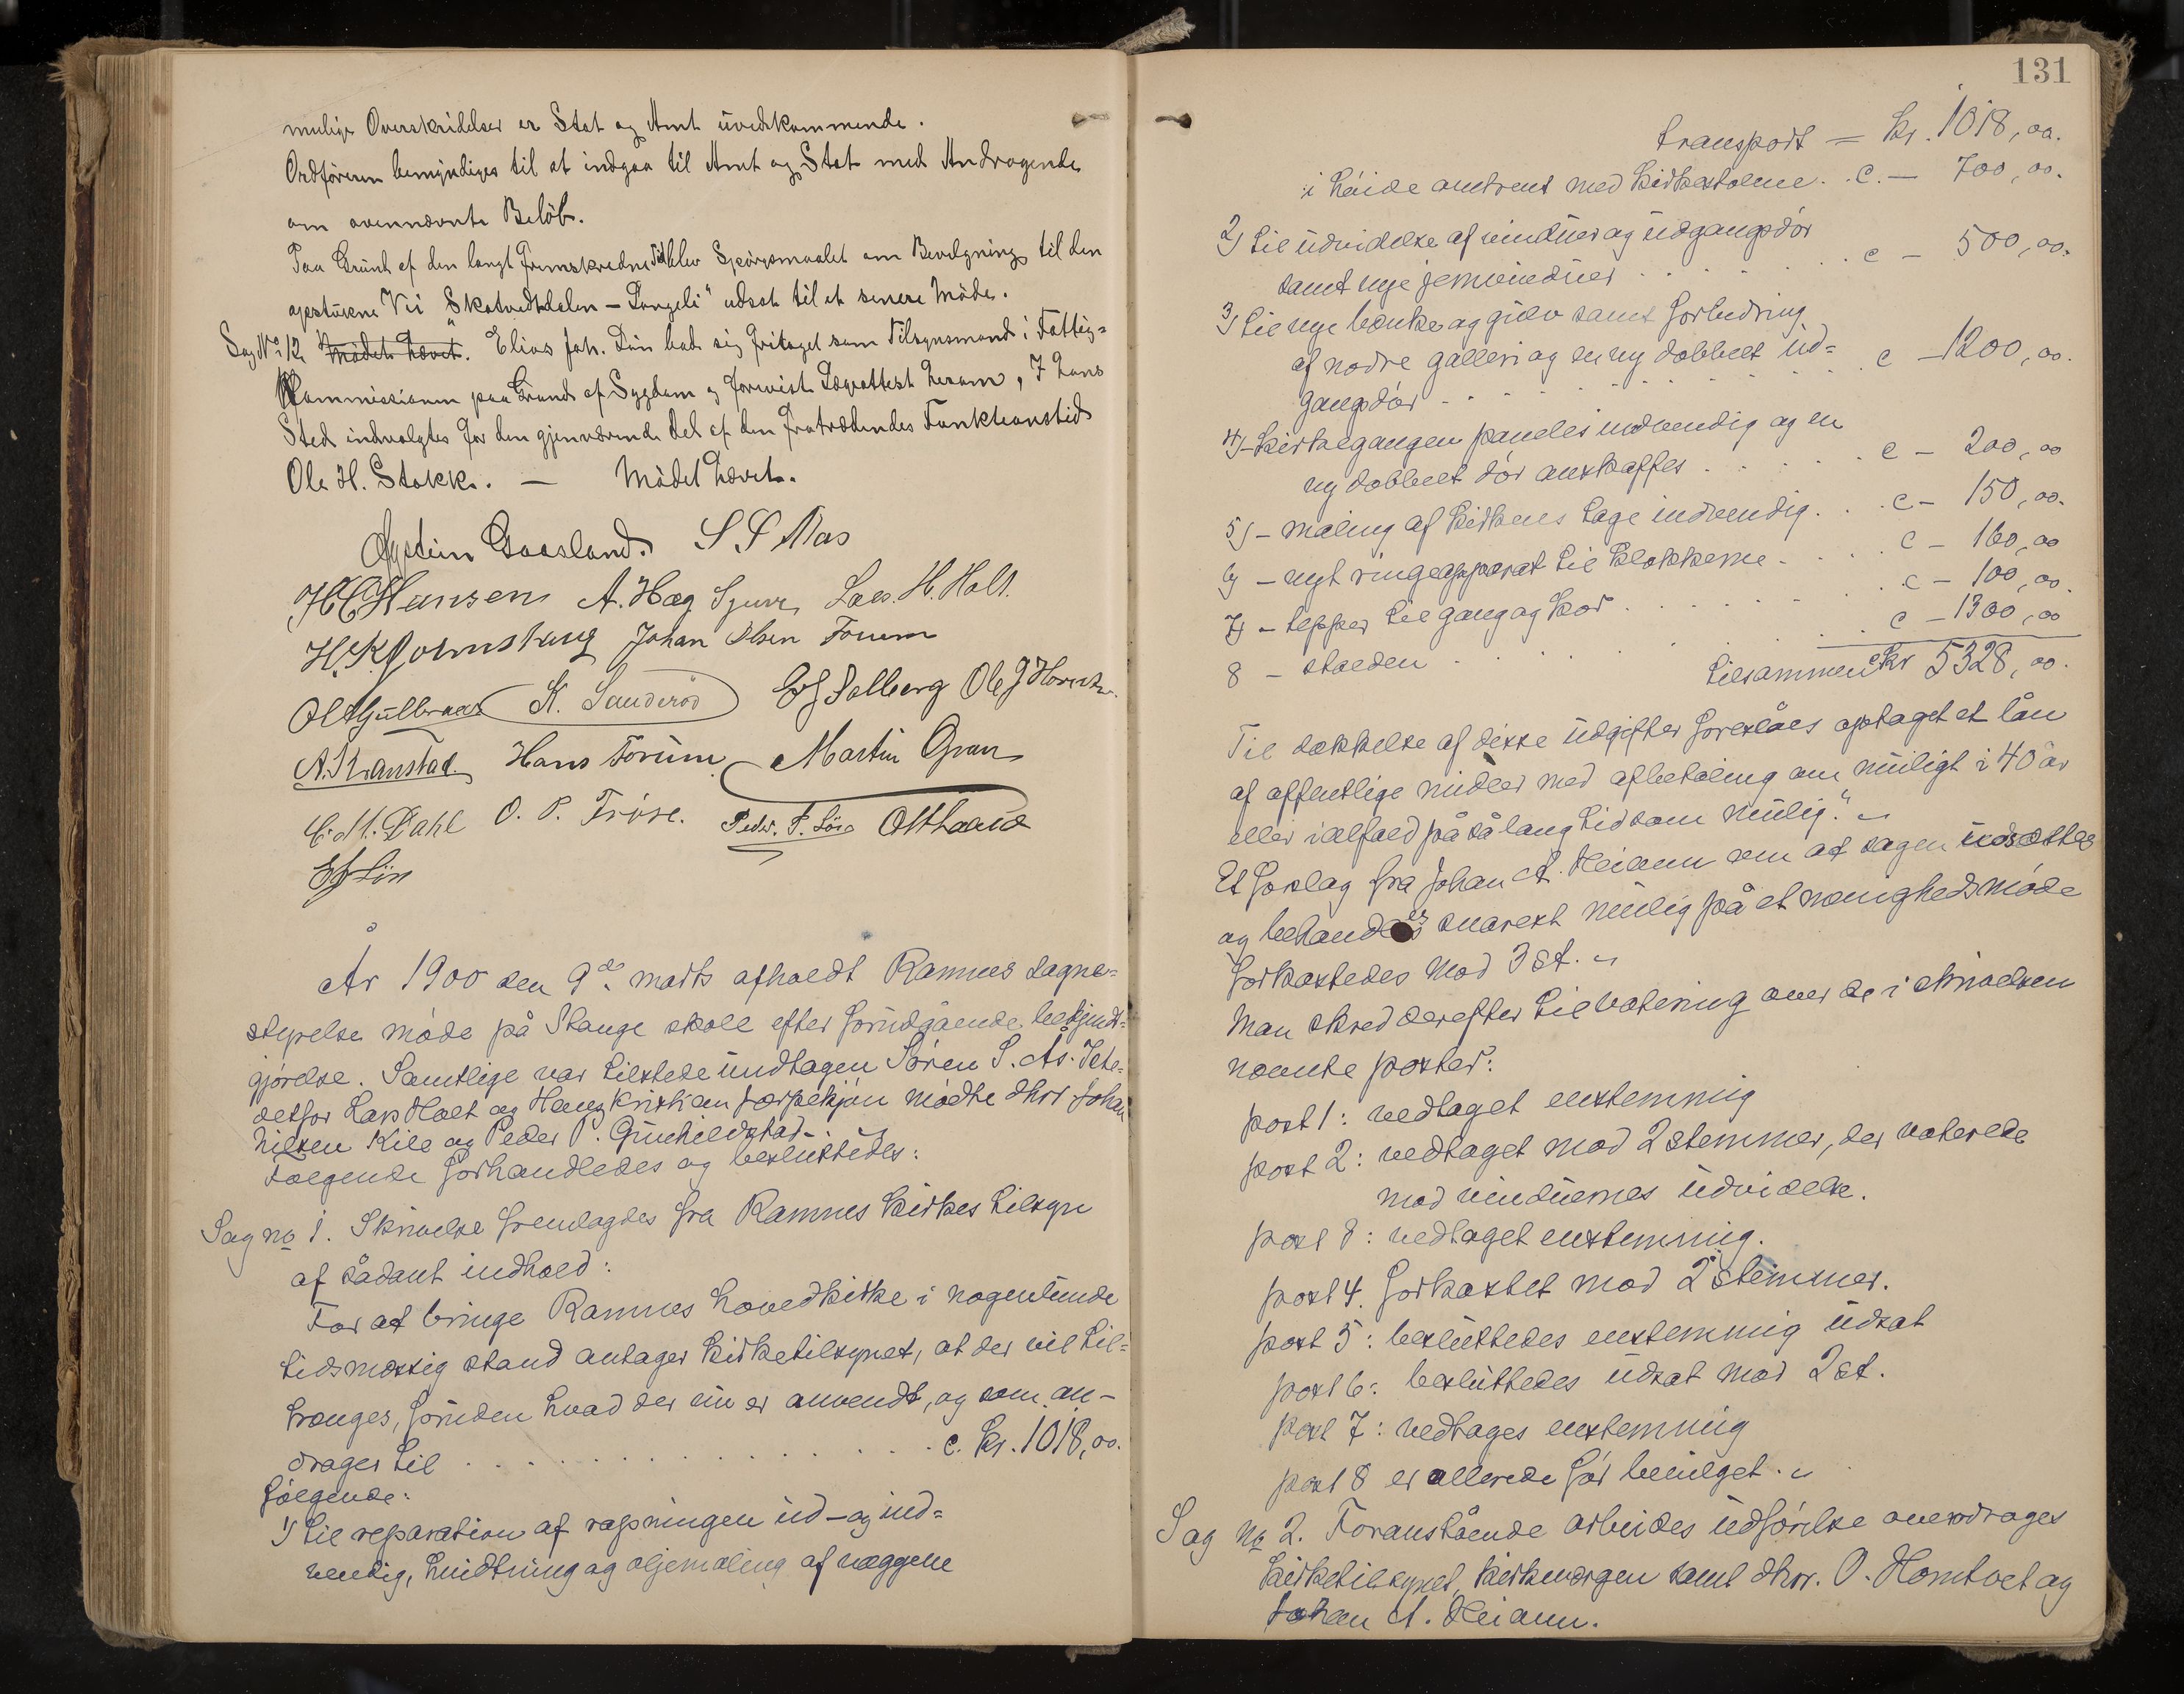 mulige Overskridelser er Stat og Amt uvedkommende.
Ordföreren bemyndiges til at indgaa til Amt og Stat med Andragende
om ovennævnte Belöb.
Paa Grund af den langt fremskredne Tid blev Spörgsmaalet om Bevilgning til den
opstukne Vei "Skatvedtdalen – Langeli" udsat til et senere Möde.
Sag No 12 Mödet hævet. Elias Joh. Lian bad sig fritaget som Tilsynsmand i Fattig=
Kommissionen paa Grund af Sygdom og foreviste Lægattest herom, I hans
Sted indvalgtes for den gjenværende del af den fratrædendes Funktionstid
Ole H. Stokke. — Mödet hævet.
Øystein Gaasland. S. S. Aas
H C Hansen A. Hæg Lars. H. Holt.
Johan Olsen Forum
Ol A Gulbraar K. Sanderöd Solberg Ole J Horntv.
A. Kranstad Hans Forum Martin Gran
C. M. Dahl O. P. Tröse.
År 1900 den 9de marts afholdt Ramnes sogne=
styrelse møde på Stange skole efter forudgående bekjendt=
gjørelse. Samtlige var tilstede undtagen Søren S. Ås. Iste=
detfor Lars Holt og Hans Kristian mødte dhrr Johan
Nilsen Kile og Peder P. Gunhildstad.
Følgende forhandledes og besluttedes:
Sag no 1. Skrivelse fremlagdes fra Ramnes kirkes tilsyn
af sådant indhold:
For at bringe Ramnes hovedkirke i nogenlunde
tidsmæssig stand antager kirketilsynet, at der vil til=
trænges, foruden hvad der nu er anvendt, og som an-
drager til . . . . . . . . . . . c. kr. 1018,00.
følgende:
1) til reparation af rapningen ud- og ind=
vendig, hvidtning og oljemaling af væggene
131
transport = kr. 1018,00.
i høide omtrent med kirkestolene. . c. – 700,00.
2) til udvidelse af vinduer og udgangsdør
samt nye jernvinduer . . . . . . . c – 500,00.
3) til nye bænke og gulv samt forbedring
af nedre galleri og en ny dobbelt ud=
gangsdør . . . . . . . . . c – 1200,00.
4) – kirkegangen paneles indvendig og en
ny dobbelt dør anskaffes . . . . . c – 200,00
5) – maling af kirkens tage indvendig. . . c – 150,00.
6 – nyt ringeapparat til klokkerne . . . . c – 160,00
7) – tepper til gang og kor . . . . . . c – 100,00.
8 – stolden . . . . . . . . c – 1300,00
tilsammen ckr 5328,00.
Til dækkelse af disse udgifter foreslåes optaget et lån
af offentlige midler med afbetaling om muligt i 40 år
eller ialfald på så lang tid som mulig." –
Et forslag fra Johan A. Heiann om at sagen udsættes
og behandles snarest mulig på et menighedsmøde
forkastedes mod 3 st. –
Man skred derefter til votering over de i skrivelsen
nævnte poster:
post 1: vedtaget enstemmig
post 2: vedtaget mod 2 stemmer, der voterede
mod vinduernes udvidelse.
post 3: vedtaget enstemmig.
post 4. forkastet mod 2 stemmer.
post 5: besluttedes enstemmig udsat
post 6: besluttedes udsat mod 2 st.
post 7: vedtages enstemmig
post 8 er allerede før bevilget. –
Sag no 2. Foranstående arbeides udførelse overdrages
kirketilsynet, kirkevergen samt dhrr. O. Horntvet og
Johan A. Heiann.